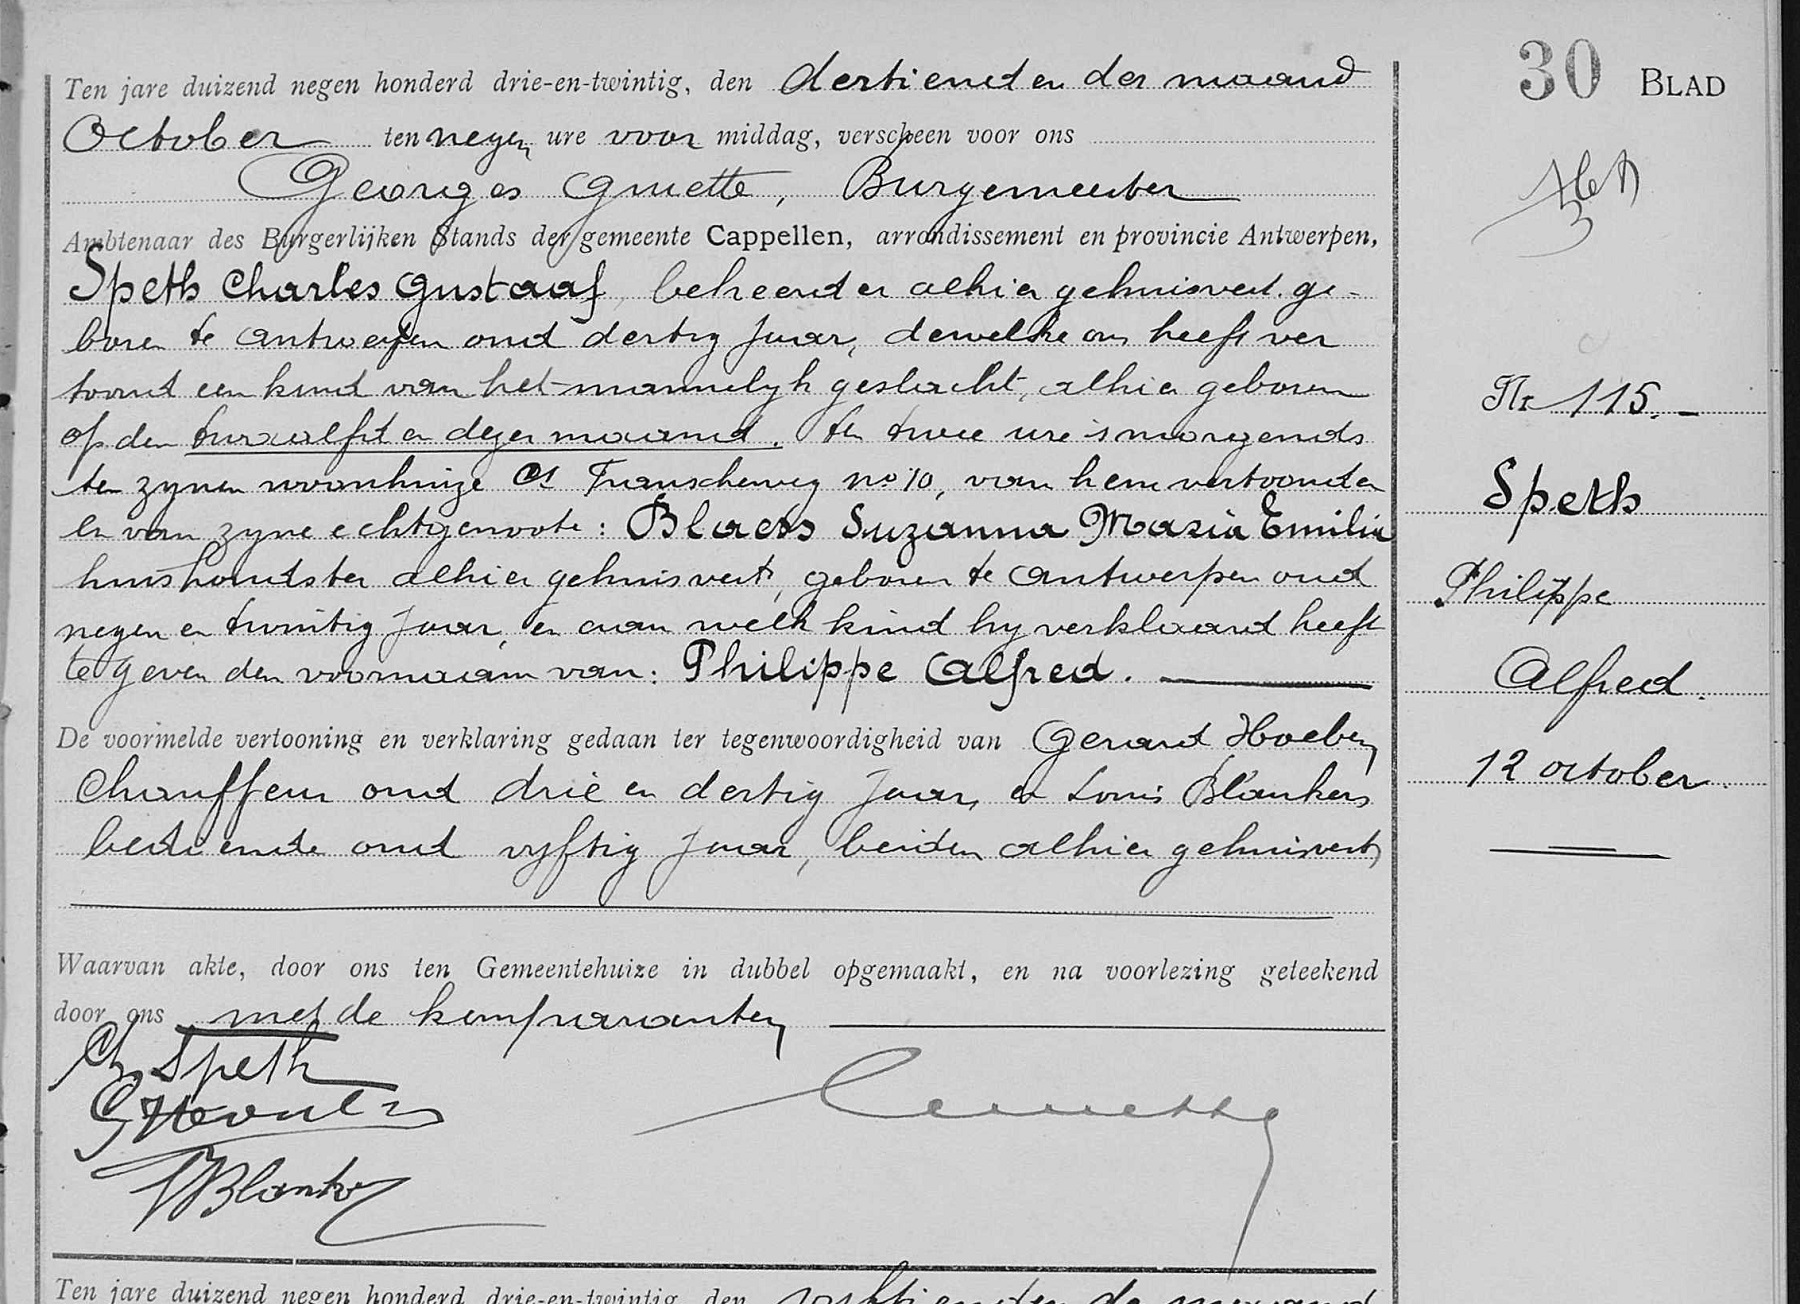 30 BLAD
Ten jare duizend negen honderd drie-en-twintig, den dertienden der maand
October ten negen ure voor middag, verscheen voor ons
Georges Burgemeester
Ambtenaar des Burgerlijken Stands der gemeente Cappellen, arrondissement en provincie Antwerpen,
Speth Charles Gustaaf, beheerder alhier gehuisvest. ge-
boren te Antwerpen oud dertig jaar, dewelke ons heeft ver
toond een kind van het mannelyk geslacht, alhier geboren
op den twaalfden dezer maand. ten twee ure 's morgends
ten zynen woonhuize Franscheweg no 10, van hem vertoonder
en van zyne echtgenoote: Blaess Suzanna Maria Emilia
huishoudster alhier gehuisvest, geboren te Antwerpen oud
negen en twintig jaar, en aan welk kind hy verklaard heeft
te geven den voornaam van: Philippe Alfred.
De voormelde vertooning en verklaring gedaan ter tegenwoordigheid van Gerard Hoeben
Chauffeur oud drie en dertig jaar, en Louis Blankers
bediende oud vyftig jaar, beiden alhier gehuisvest
Waarvan akte, door ons ten Gemeentehuize in dubbel opgemaakt, en na voorlezing geteekend
door ons met de komparanten
Ch. Speth
Nr 115.-
Speth
Philippe
Alfred.
12 october.
Ten jare duizend negen honderd drie-en-twintig, den